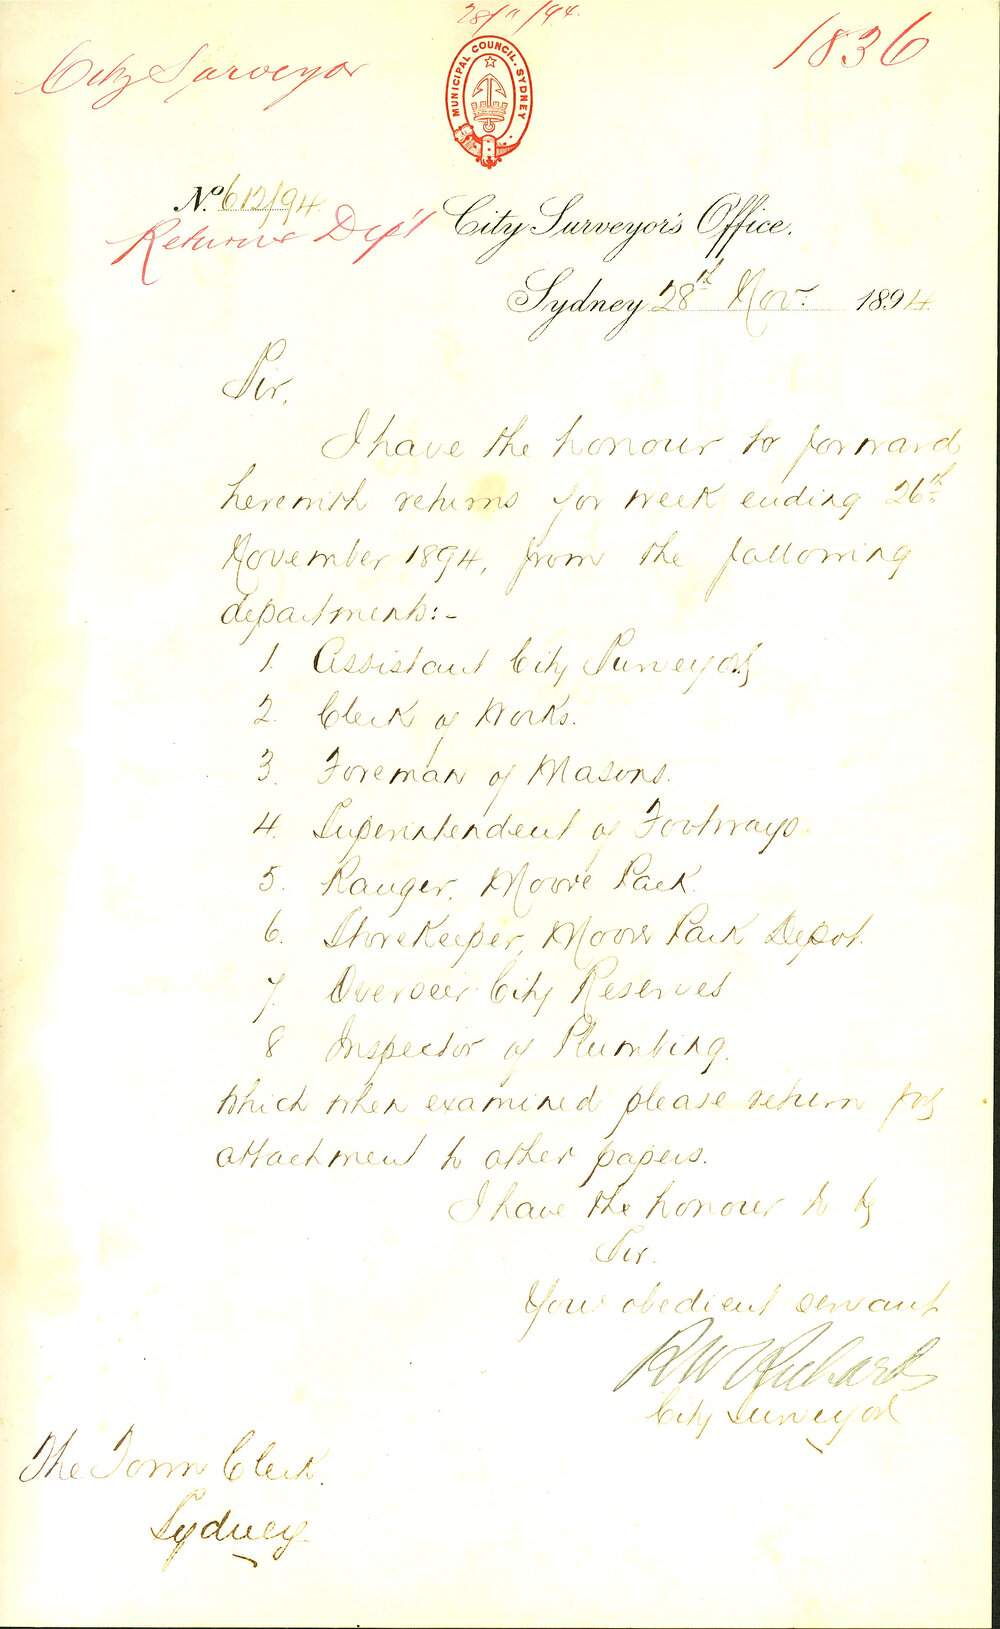 28/11/94.
City Surveyor
1836
MUNICIPAL COUNCIL. SYDNEY
No. 612/94
Returns Dep't
City Surveyor's Office,
Sydney 28th Novr. 1894
Sir,
I have the honour to forward
herewith returns for week ending 26th
November 1894, from the following
departments:-
1. Assistant City Surveyor
2. Clerk of Works.
3. Foreman of Masons.
4. Superintendent of Footways.
5. Ranger, Moore Park.
6. Storekeeper, Moore Park Depot.
7. Overseer City Reserves
8 Inspector of Plumbing.
which when examined please return for
attachment to other papers.
I have the honour to be
Sir.
Your obedient servant
R W Richards
City Surveyor
The Town Clerk.
Sydney.